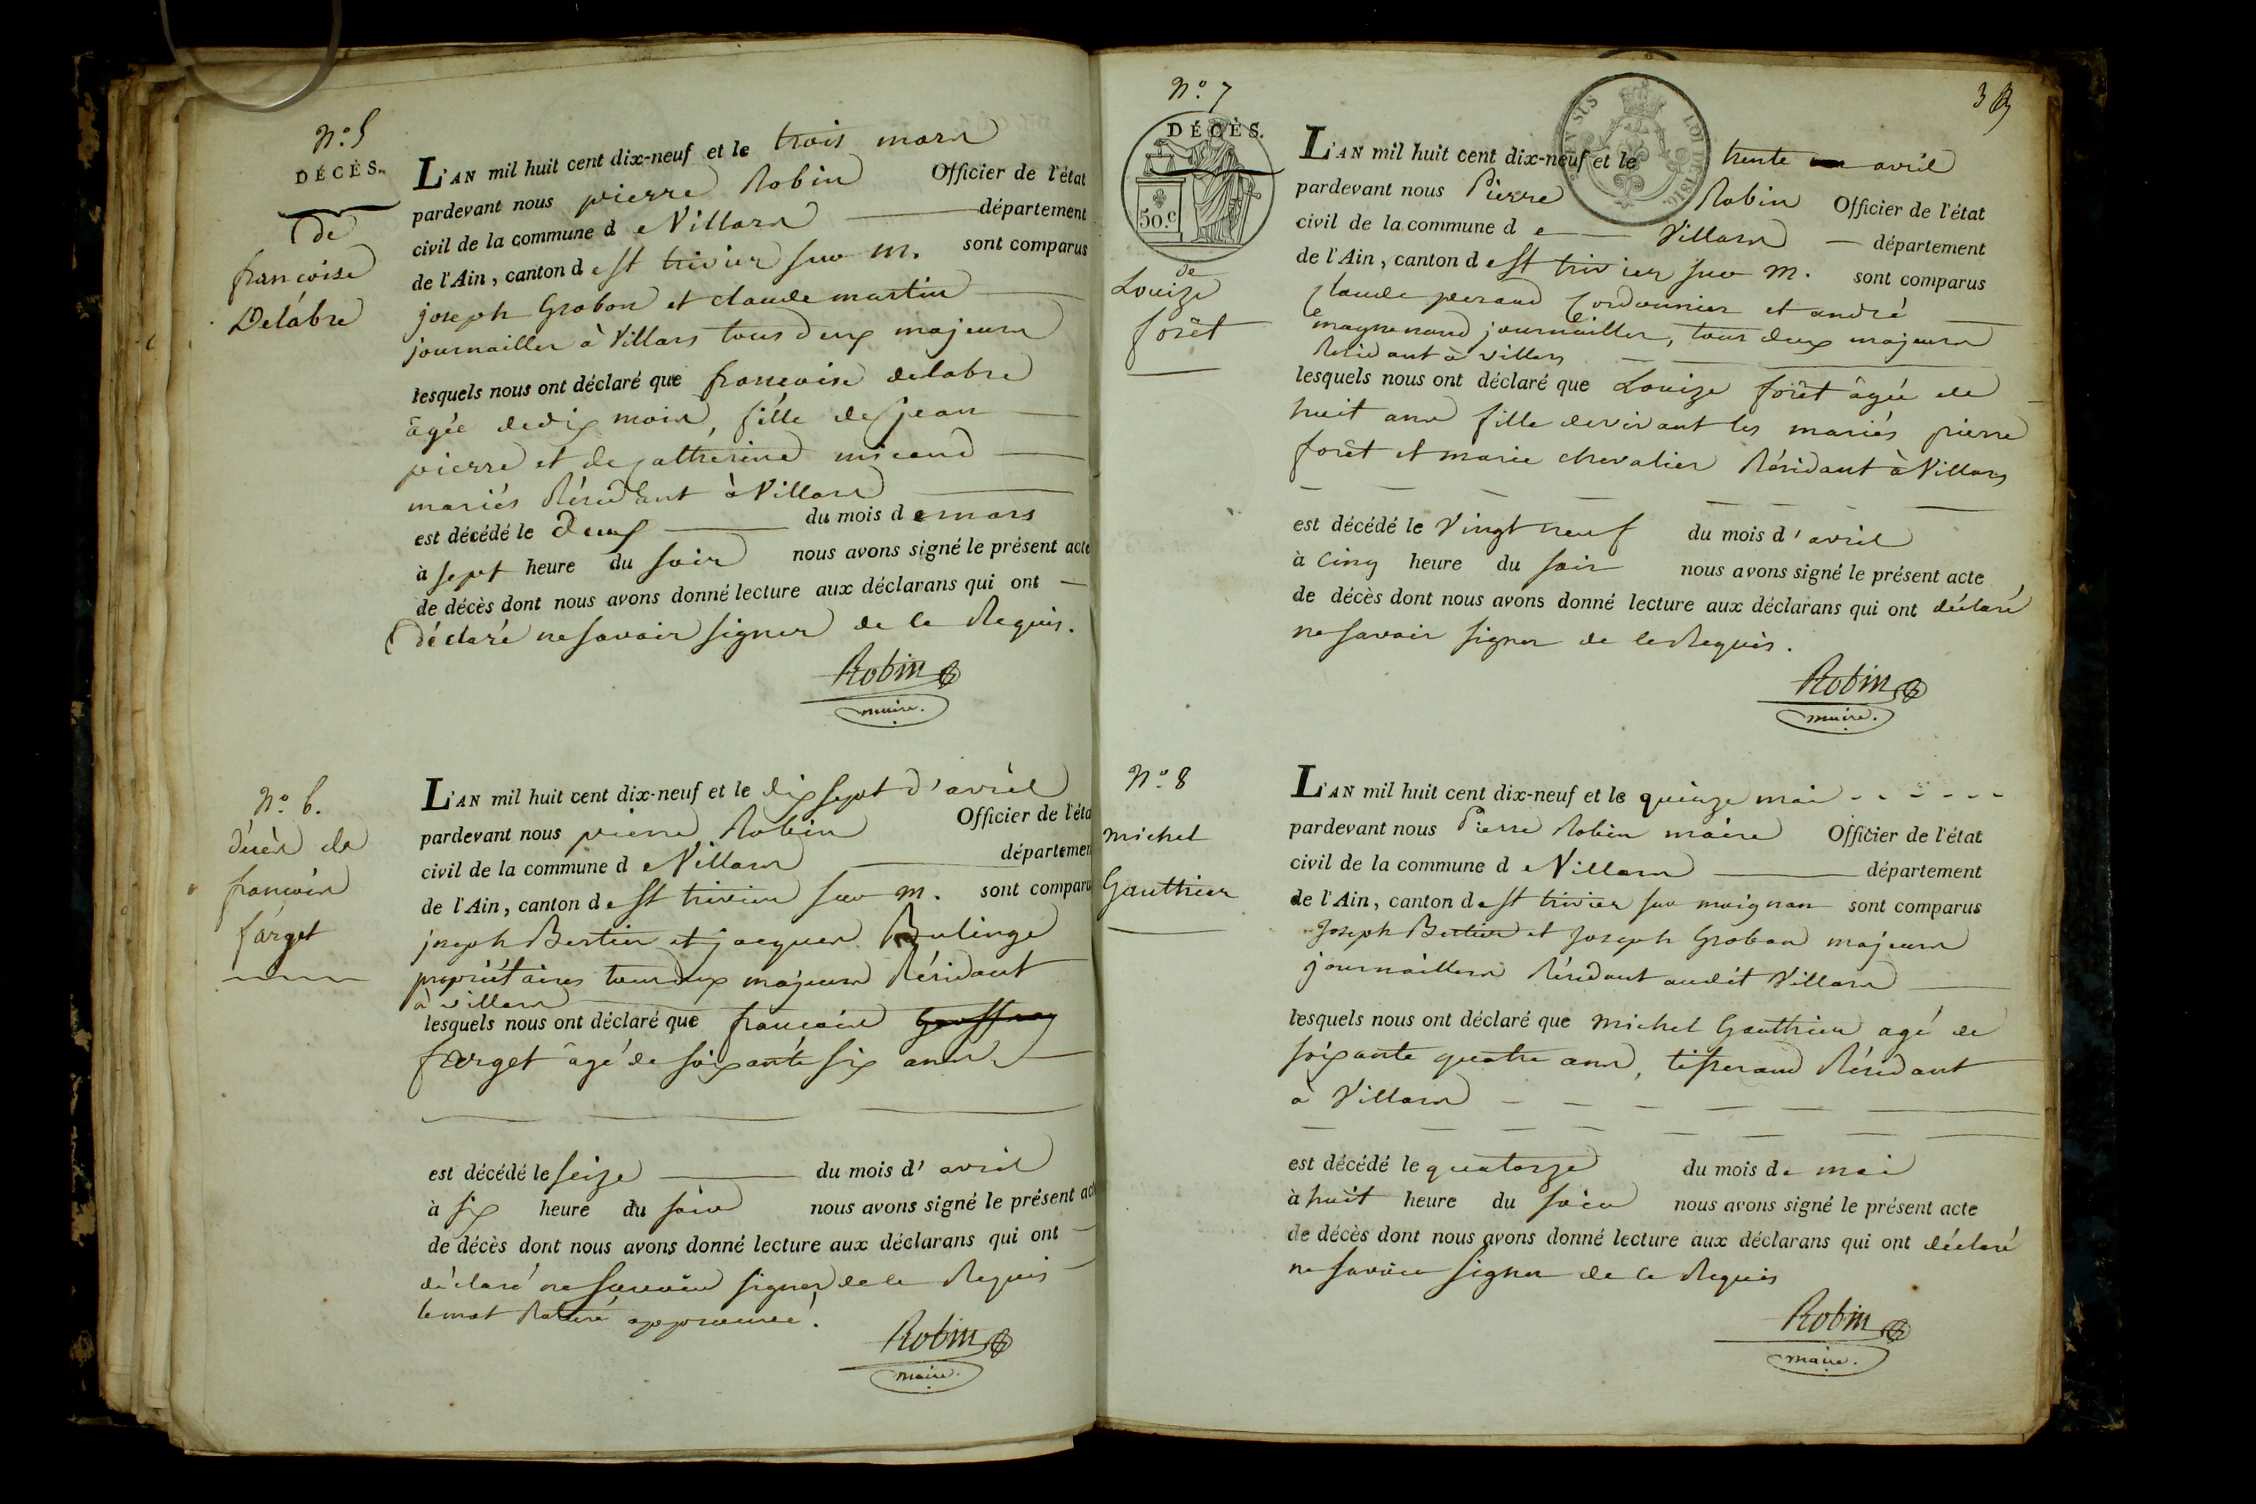 N.o 5
DÉCÈS.
de
françoise
Delabre
L'AN mil huit cent dix-neuf et le trois mars
pardevant nous pierre Robin Officier de l'état
civil de la commune d e Villars département
de l'Ain, canton d e St trivier sur m. sont comparus
joseph Grobon et claude martin
journailler à Villars tous deux majeurs
lesquels nous ont déclaré que francoise delabre
âgée de dix mois, fille de jean
pierre et de catherine
mariés Résidant à Villars
est décédé le deux du mois d e mars
à sept heure du soir nous avons signé le présent acte
de décès dont nous avons donné lecture aux déclarans qui ont
déclaré ne savoir signer de ce Requis.
Robin
maire.
N.o 6.
décès de
francois
farget
L'AN mil huit cent dix-neuf et le dix sept d'avril
pardevant nous pierre Robin Officier de l'éta
civil de la commune d e Villars départemen
de l'Ain, canton d e St trivier sur m. sont comparu
joseph Bertin et jacques Bulinge
propriétaires tous deux majeurs Résidant
à villars
lesquels nous ont déclaré que françois Geoffray
farget âgé de soixante six ans
est décédé le seize du mois d' avril
à six heure du soir nous avons signé le présent act
de décès dont nous avons donné lecture aux déclarans qui ont
déclaré ne savoir signer de ce Requis
le mot Raturé approuvé.
Robin
maire.
38
N.o 7
DÉCÈS.
50.c
de
Louize
forêt
LOI DE 1816.
L'AN mil huit cent dix-neuf et le trente avril
pardevant nous Pierre Robin Officier de l'état
civil de la commune d e Villars département
de l'Ain, canton d e St trivier sur m. sont comparus
Claude peraud Cordonnier et andré
magnenand journailler, tous deux majeurs
Résidant à villars
lesquels nous ont déclaré que Louize forêt âgée de
huit ans fille de vivant les mariés pierre
forêt et marie chevalier Résidant à Villars
est décédé le vingt neuf du mois d' avril
à cinq heure du soir nous avons signé le présent acte
de décès dont nous avons donné lecture aux déclarans qui ont déclaré
ne savoir signer de ce Requis.
Robin
maire.
N.o 8
michel
Gauthier
L'AN mil huit cent dix-neuf et le quinze mai
pardevant nous Pierre Robin maire Officier de l'état
civil de la commune d e Villars département
de l'Ain, canton d e St trivier sur moignan sont comparus
Joseph Bertin et Joseph Grobon majeurs
journaillers Résidant audit Villars
lesquels nous ont déclaré que michel Gauthier agé de
soixante quatre ans, tisserand Résidant
à Villars
est décédé le quatorze du mois d e mai
à huit heure du soir nous avons signé le présent acte
de décès dont nous avons donné lecture aux déclarans qui ont déclaré
ne savoir signer de ce Requis
Robin
maire.